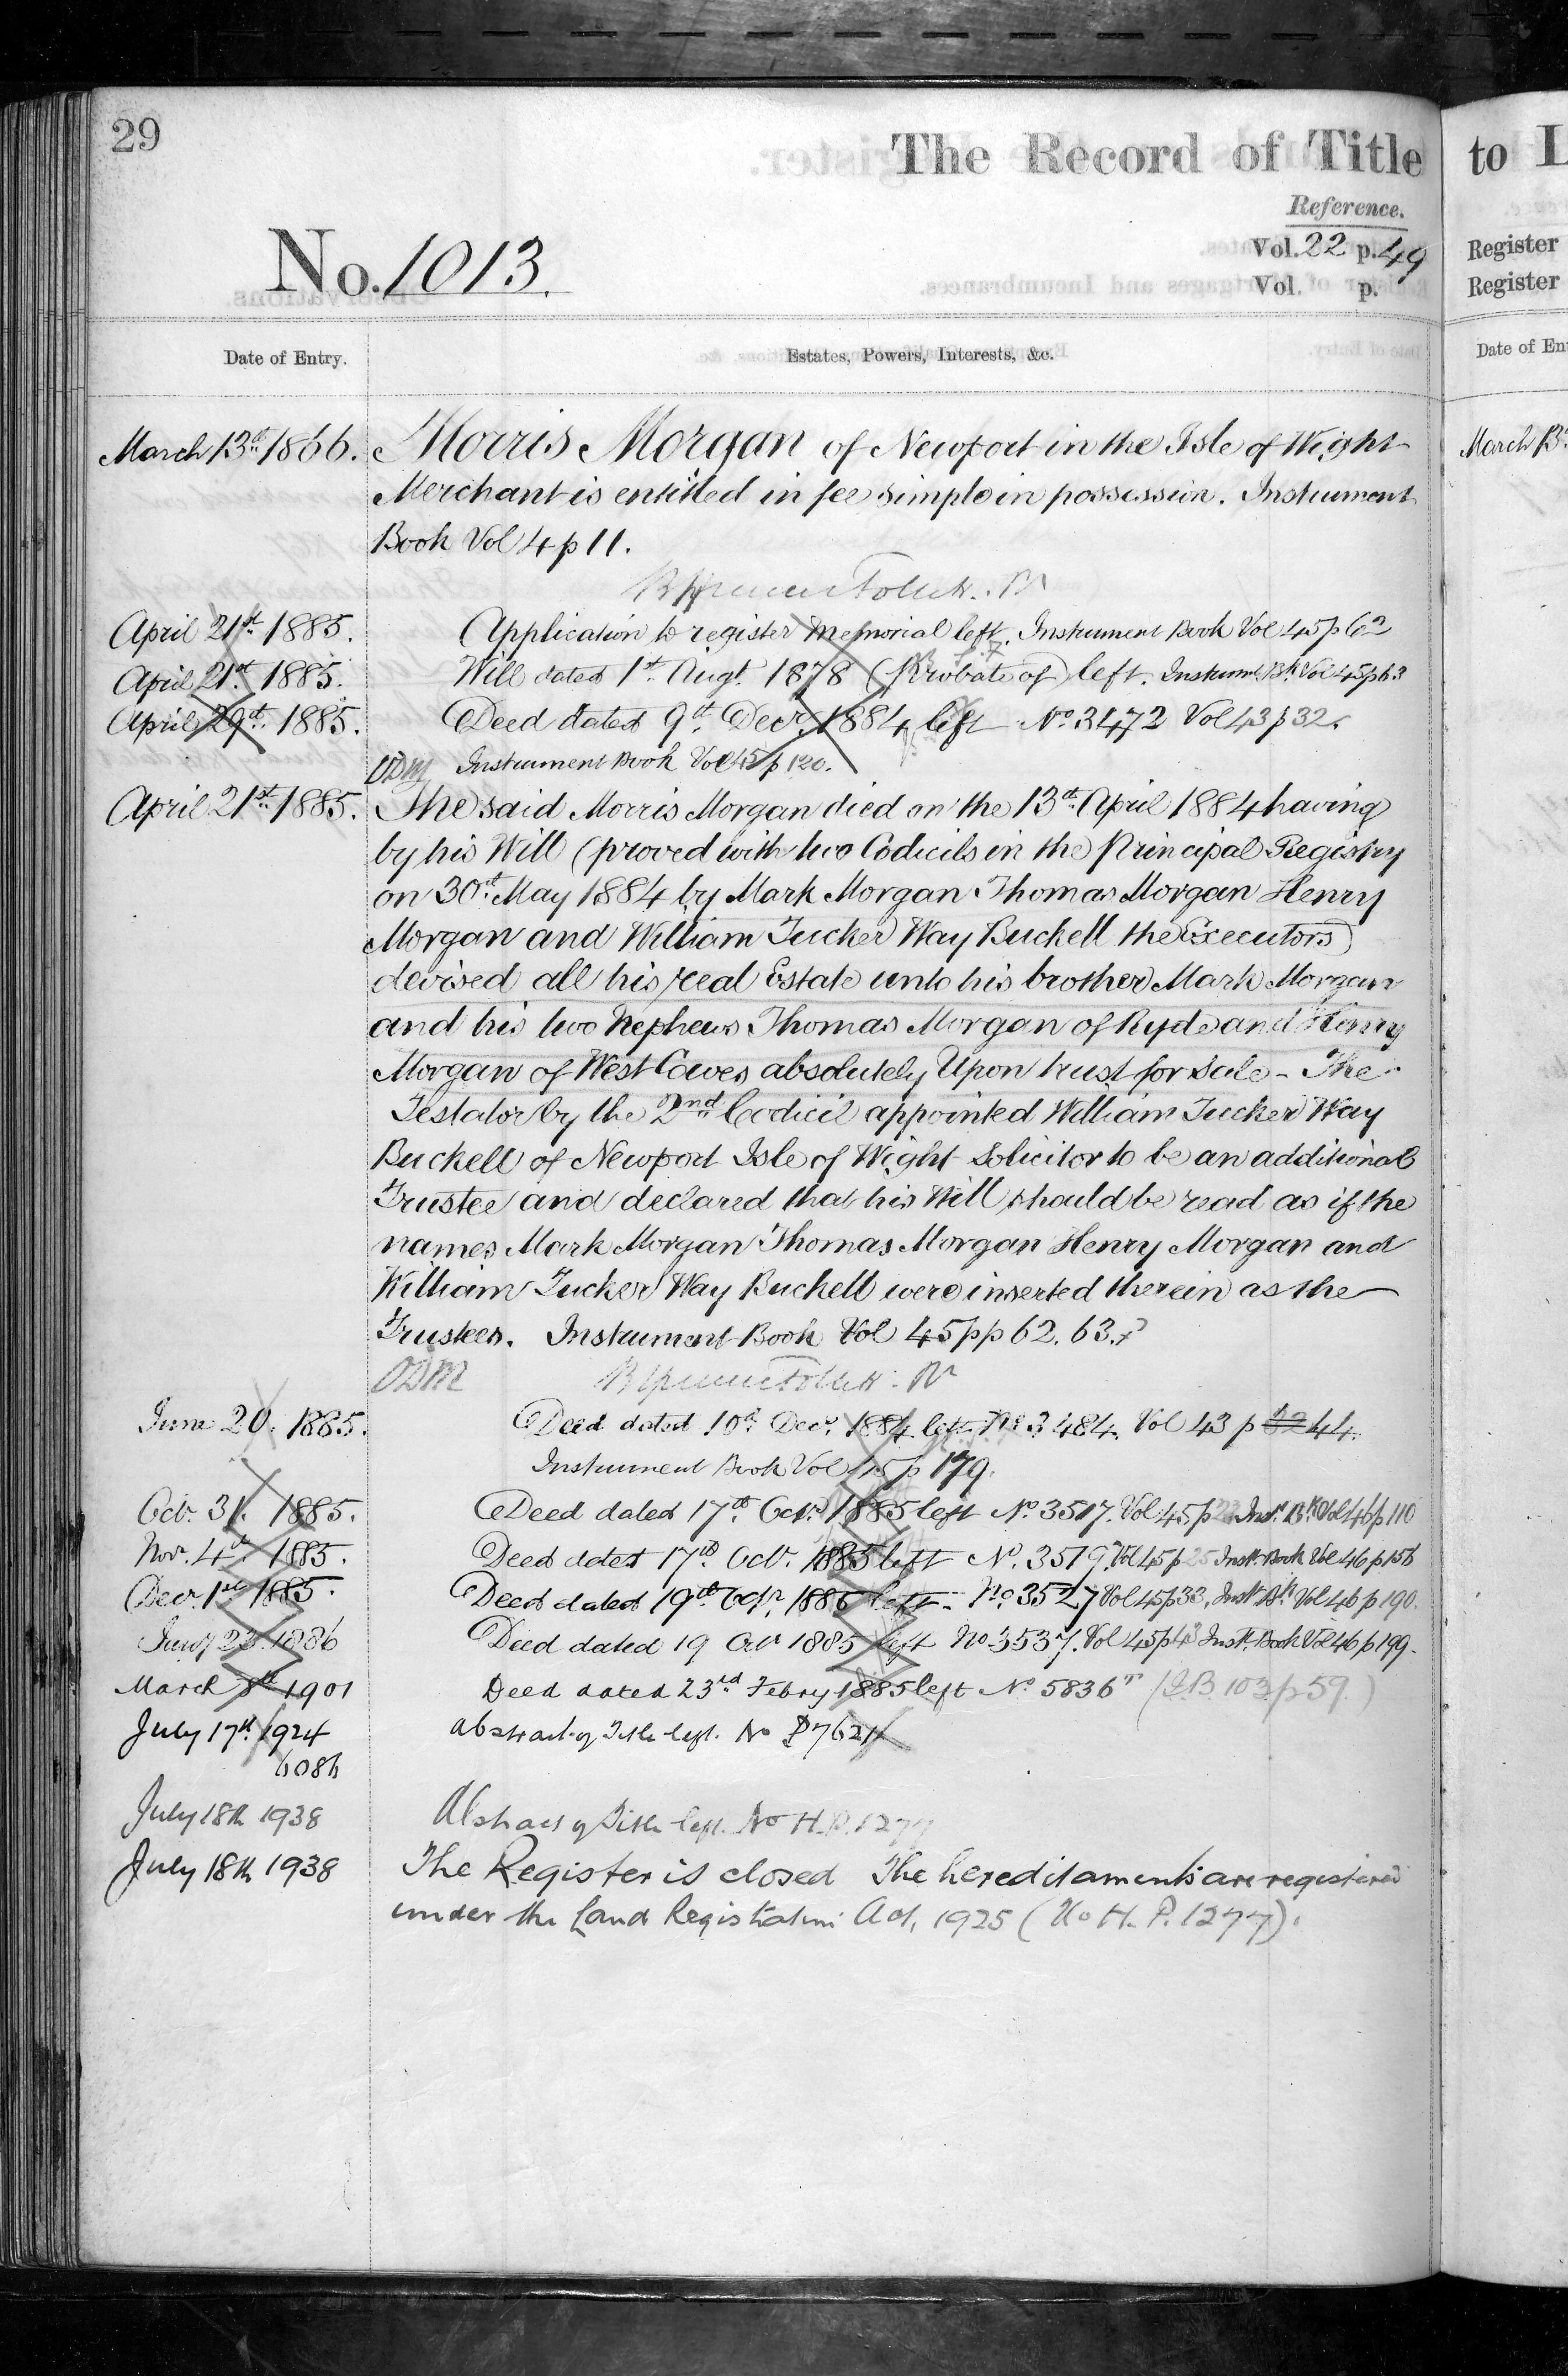 29
The Record of Title
to L
Reference.
No. 1013.
Vol. 22 p. 49
Register
Vol. p.
Register
Date of Entry.
Estates, Powers, Interests, &c.
Date of En
March 13th 1866. Morris Morgan of Newport in the Isle of Wight
March 13
Merchant is entitled in fee simple in possession. Instrument
Book Vol 4 p 11.
April 21st 1885. Application to register Memorial left. Instrument Book Vol 45 p 62
April 21st 1885. Will dated 1st Augt. 1878 (Probate of) left. Instrumt. Bk. Vol 45 p 63
April 29th 1885. Deed dated 9th Decr. 1884 left No. 3472 Vol 43 p 32.
ODM Instrument Book Vol 45 p 120.
April 21st 1885. The said Morris Morgan died on the 13th April 1884 having
by his Will (proved with two Codicils in the Principal Registry
on 30th May 1884 by Mark Morgan Thomas Morgan Henry
Morgan and William Tucker Way Buckell the Executors)
devised all his real Estate unto his brother Mark Morgan
and his two Nephews Thomas Morgan of Ryde and Henry
Morgan of West Cowes absolutely Upon trust for Sale - The
Testator by the 2nd Codicil appointed William Tucker Way
Buckell of Newport Isle of Wight Solicitor to be an additional
Trustee and declared that his Will should be read as if the
names Mark Morgan Thomas Morgan Henry Morgan and
William Tucker Way Buckell were inserted therein as the
Trustees. Instrument Book Vol 45 pp 62. 63.
ODM
June 20. 1885. Deed dated 10th Decr. 1884 left No 3484. Vol 43 p 44.
Instrument Book Vol 45 p 179.
Octr. 31. 1885. Deed dated 17th Octr. 1885 left No. 3517. Vol. 45 p 23 Inst. Bk. Vol 46 p 110
Novr. 4th 1885. Deed dated 17th Octr. 1885 left No. 3519. Vol 45 p 25 Instt. Book Vol 46 p 156
Decr. 1st 1885. Deed dated 19th Octr. 1885 left. No. 3527 Vol 45 p 33, Inst. Bk Vol 46 p 190.
Jany 23. 1886 Deed dated 19 Octr 1885 left No 3537. Vol 45 p 43 Instt. Book Vol 46 p 199.
March 8th 1901 Deed dated 23rd Febry 1885 left No. 5836 (I.B. 103 p 59.)
July 17th 1924 abstract of Title left. No 7621
6086
July 18th 1938 Abstract of Title left. No H.P. 1277
July 18th 1938 The Register is closed The hereditaments are registered
under the Land Registration Act, 1925 (No H.P. 1277).